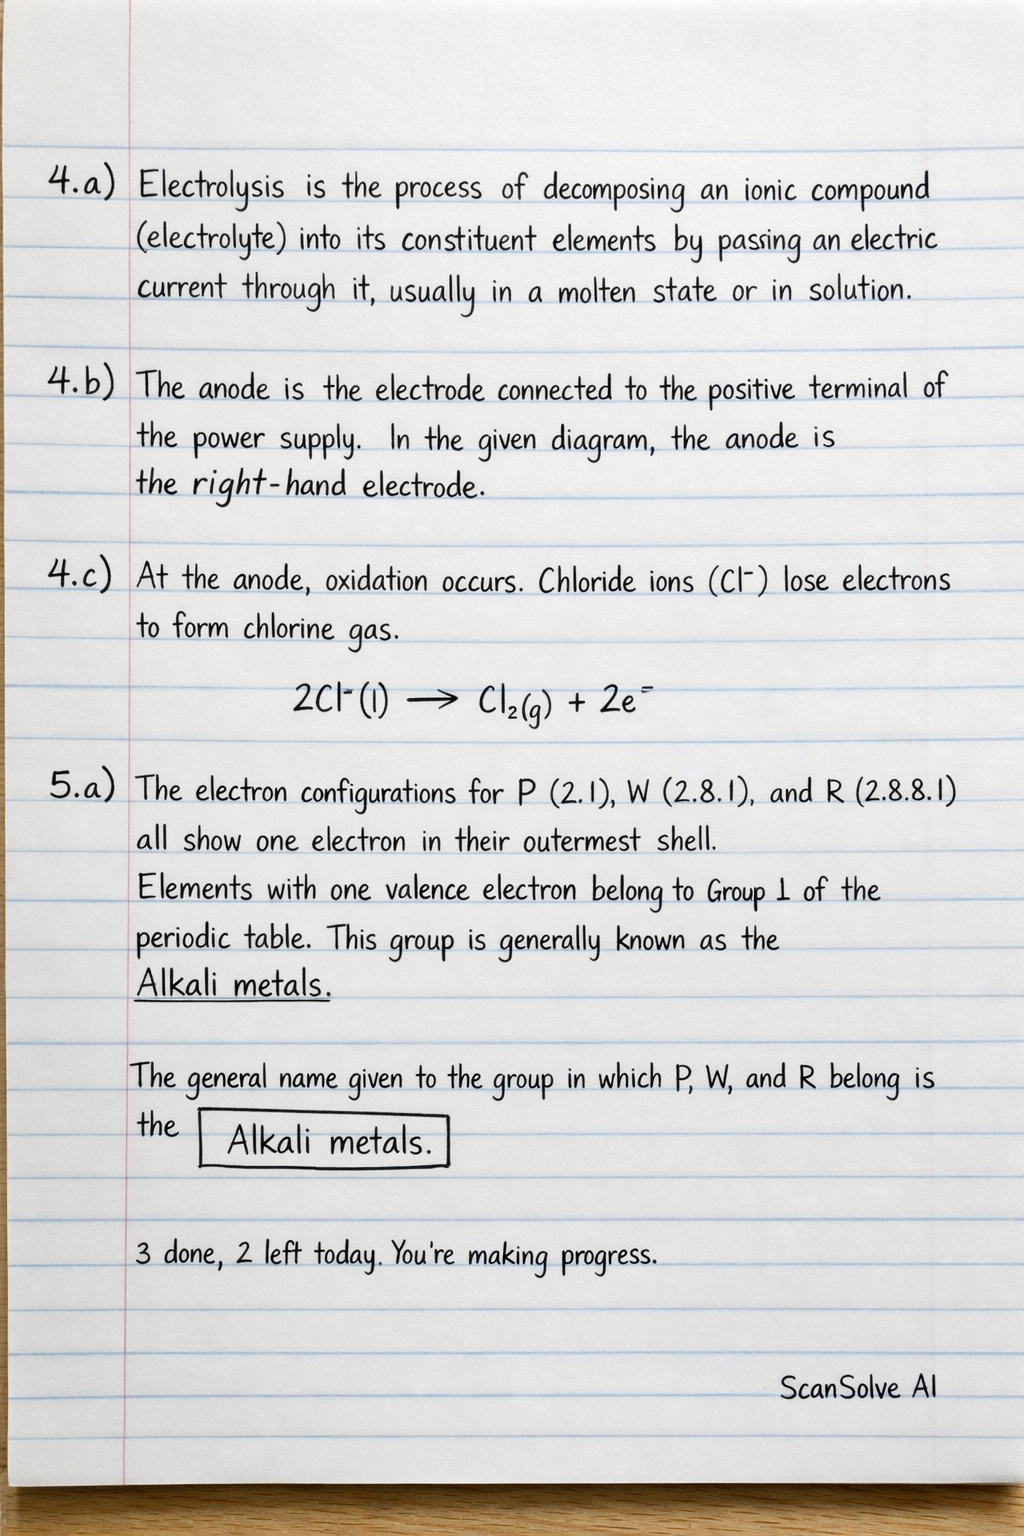 4.a) Electrolysis is the process of decomposing an ionic compound
(electrolyte) into its constituent elements by passing an electric
current through it, usually in a molten state or in solution.
4.b) The anode is the electrode connected to the positive terminal of
the power supply. In the given diagram, the anode is
the right-hand electrode.
4.c) At the anode, oxidation occurs. Chloride ions (Cl⁻) lose electrons
to form chlorine gas.
2Cl⁻(l) ⟶ Cl₂(g) + 2e⁻
5.a) The electron configurations for P (2.1), W (2.8.1), and R (2.8.8.1)
all show one electron in their outermest shell.
Elements with one valence electron belong to Group 1 of the
periodic table. This group is generally known as the
Alkali metals.
The general name given to the group in which P, W, and R belong is
the Alkali metals.
3 done, 2 left today. You're making progress.
ScanSolve AI